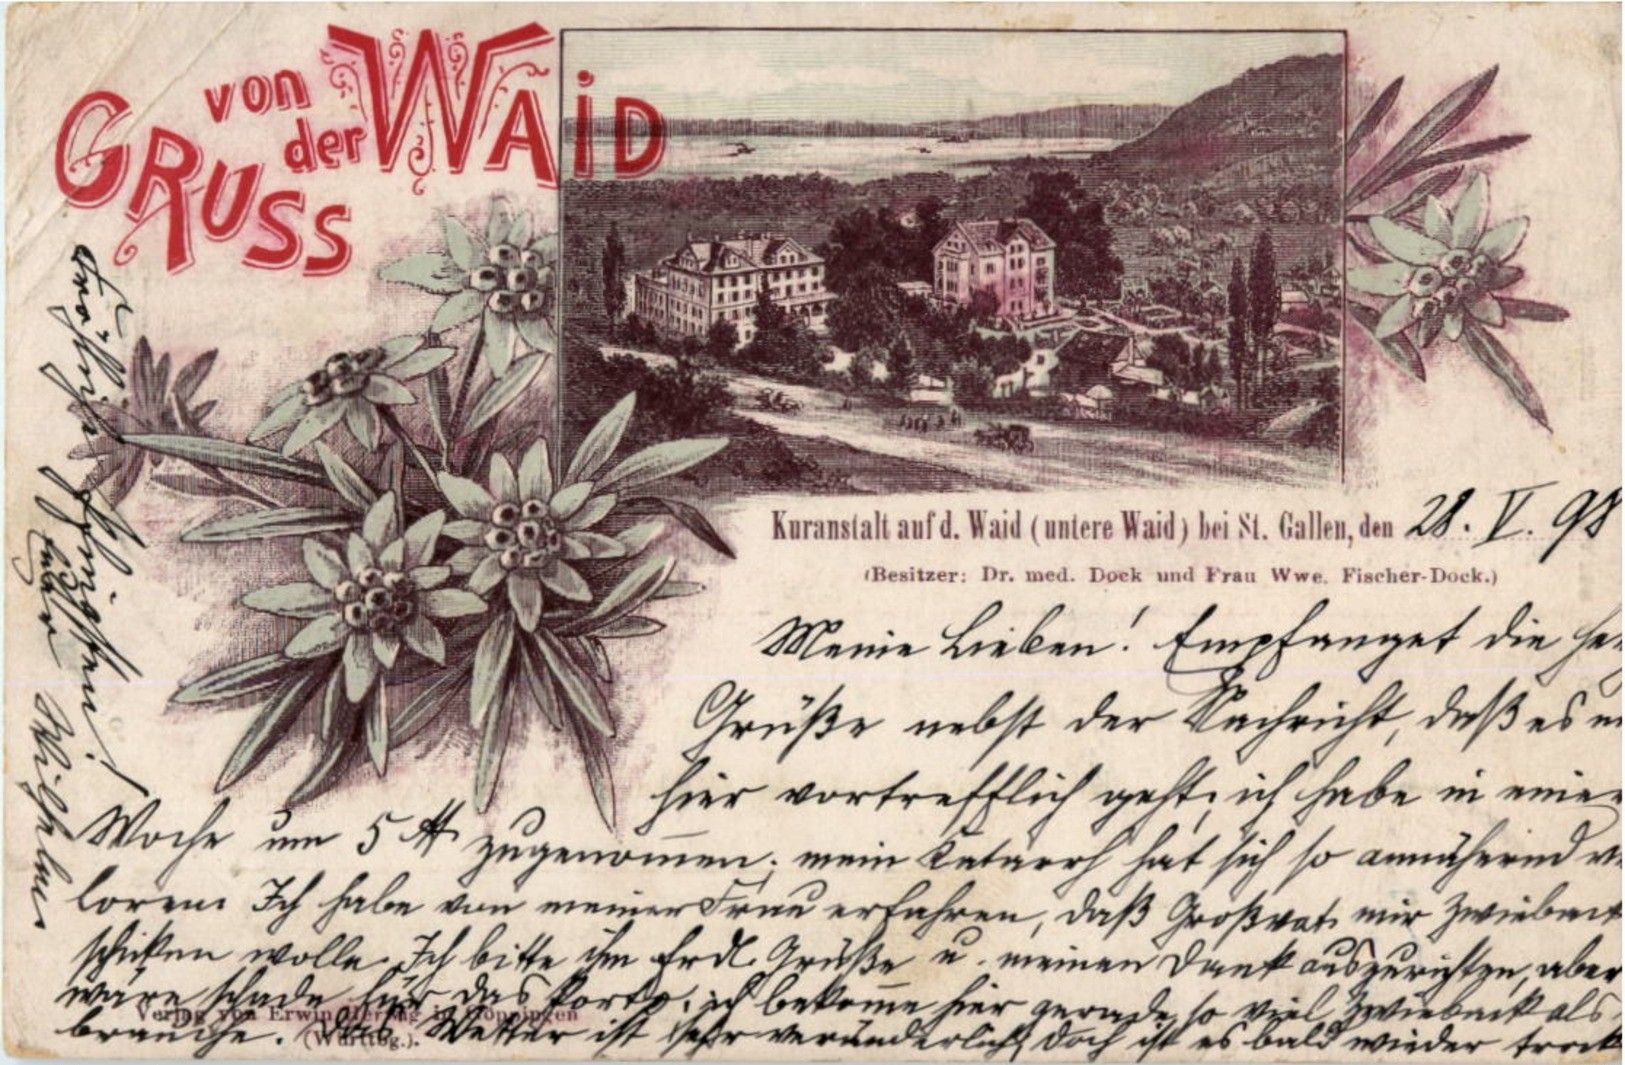 GRUSS von der WAID
Kuranstalt auf d. Waid (untere Waid) bei St. Gallen, den 28. V. 98
(Besitzer: Dr. med. Dock und Frau Wwe. Fischer-Dock.)
Meine Lieben! Empfanget die
Grüße nebst der Nachricht, daß es
hier vortrefflich geht; ich habe in einer
Woche um 5 ℔ zugenommen; mein Katarrh hat sich so annähernd
loren. Ich habe von meiner Frau erfahren, daß Großvat. mir Zwieback
schicken wolle. Ich bitte ihm Grüße u. meinen Dank auszurichten, aber
wäre schade für das Porto; ich bekomme hier gerade so viel Zwieback als
brauche. Das Wetter ist sehr veränderlich, doch ist es bald wieder
Fröhliche Pfingsten!
Euer
Wilhelm
Verlag von Erwin Herzog in Göppingen
(Württbg.).